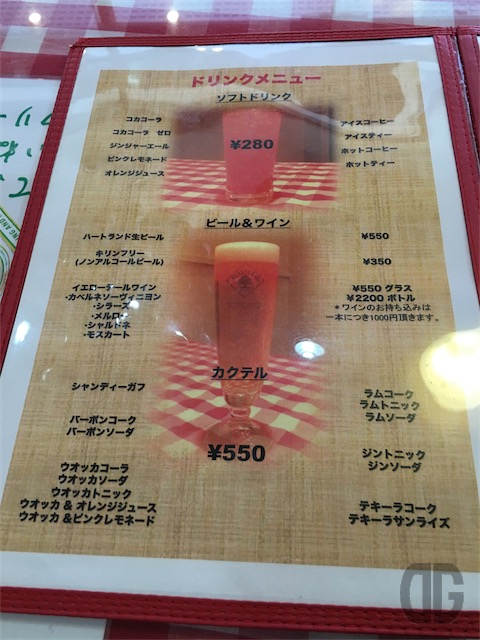 ドリンクメニュー
ソフトドリンク
コカコーラ
コカコーラ ゼロ
ジンジャーエール
ピンクレモネード
オレンジジュース
¥280
アイスコーヒー
アイスティー
ホットコーヒー
ホットティー
ビール＆ワイン
ハートランド生ビール ¥550
ホリンフリー
(ノンアルコールビール) ¥350
イエローテールワイン
・カベルネソーヴィニヨン
・シラーズ
・メルロー
・シャルドネ
・モスカート
¥550 グラス
¥2200 ボトル
＊ワインのお持ち込みは
一本につき1000円頂きます。
カクテル
¥550
シャンディーガフ
バーボンコーク
バーボンソーダ
ウオッカコーラ
ウオッカソーダ
ウオッカトニック
ウオッカ & オレンジジュース
ウオッカ &ピンクレモネード
ラムコーク
ラムトニック
ラムソーダ
ジントニック
ジンソーダ
テキーラコーク
テキーラサンライズ
DG